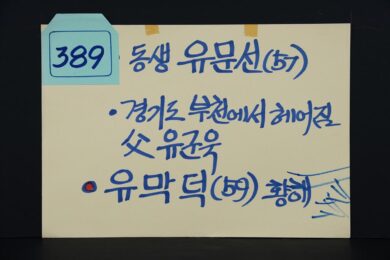 389
동생 유문선(57)
• 경기도 부천에서 헤어짐
父 유균욱
• 유막덕(59) 황해